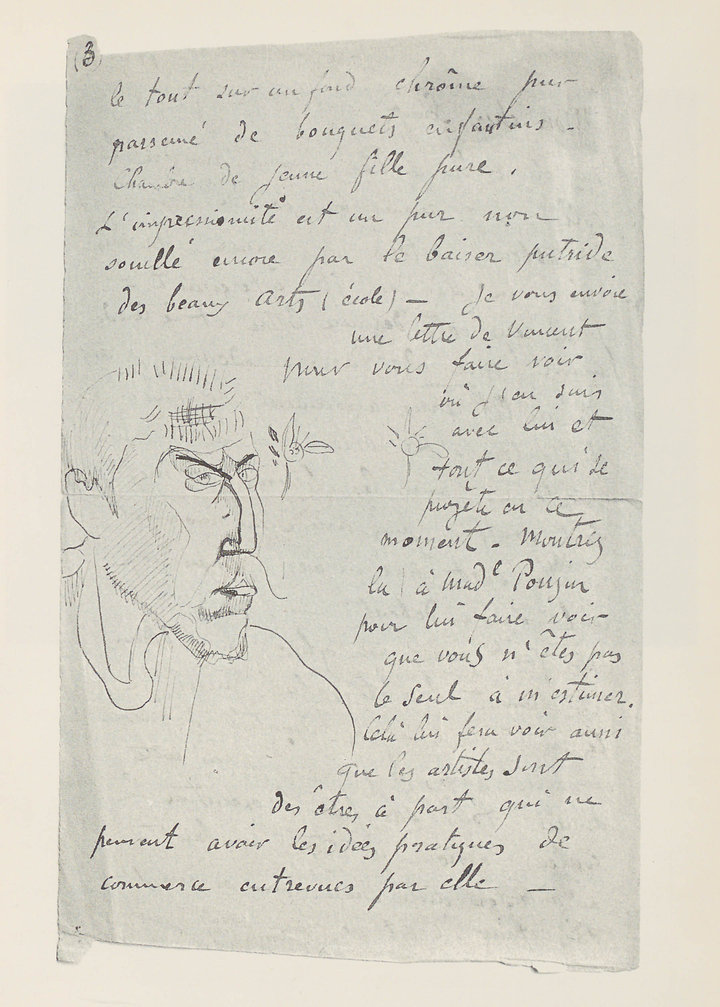 (3)
le tout sur un fond chrôme pur
parsemé de bouquets enfantins -
Chambre de jeune fille pure.
L'impressioniste est un pur non
souillé encore par le baiser putride
des beaux Arts (école) — Je vous envoie
une lettre de Vincent
pour vous faire voir
où j'en suis
avec lui et
tout ce qui se
projète en ce
moment - Montrez
la à Mad^e
pour lui faire voir
que vous n'êtes pas
le seul à m'estimer.
Celà lui fera voir aussi
que les artistes sont
des êtres à part qui ne
peuvent avoir les idées pratiques de
commerce entrevues par elle —